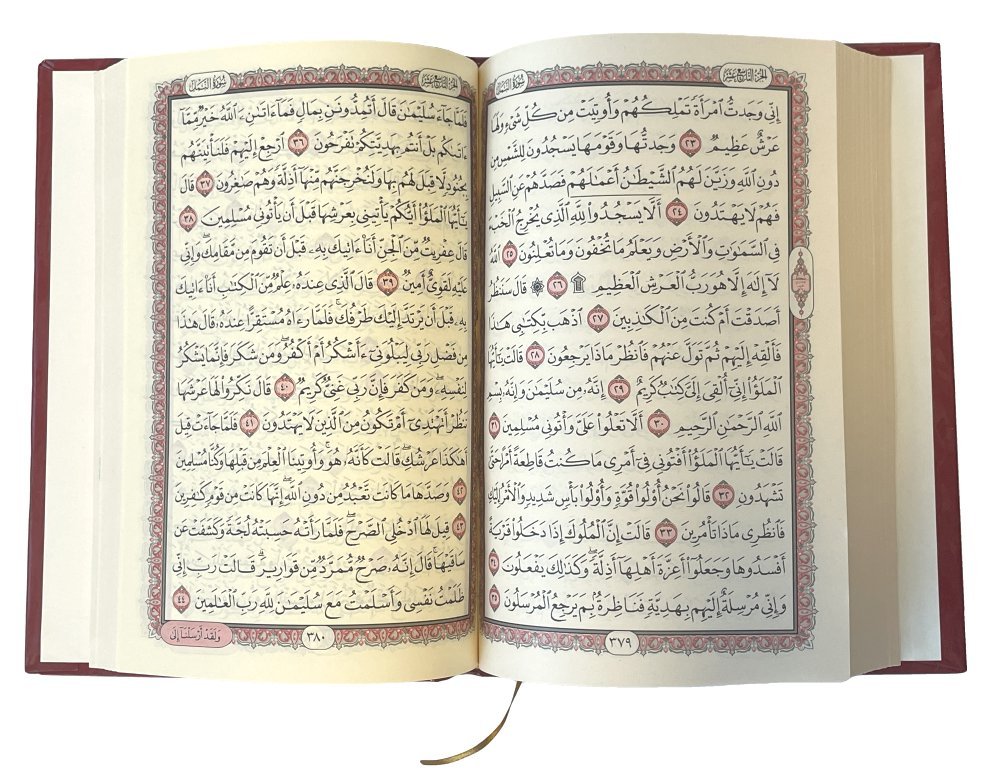 الجزء التاسع عشر
سورة النمل
إِنِّى وَجَدتُّ ٱمْرَأَةً تَمْلِكُهُمْ وَأُوتِيَتْ مِن كُلِّ شَىْءٍ وَلَهَا
عَرْشٌ عَظِيمٌ ٢٣ وَجَدتُّهَا وَقَوْمَهَا يَسْجُدُونَ لِلشَّمْسِ مِن
دُونِ ٱللَّهِ وَزَيَّنَ لَهُمُ ٱلشَّيْطَٰنُ أَعْمَٰلَهُمْ فَصَدَّهُمْ عَنِ ٱلسَّبِيلِ
فَهُمْ لَا يَهْتَدُونَ ٢٤ أَلَّا يَسْجُدُوا۟ لِلَّهِ ٱلَّذِى يُخْرِجُ ٱلْخَبْءَ
فِى ٱلسَّمَٰوَٰتِ وَٱلْأَرْضِ وَيَعْلَمُ مَا تُخْفُونَ وَمَا تُعْلِنُونَ ٢٥ ٱللَّهُ
لَآ إِلَٰهَ إِلَّا هُوَ رَبُّ ٱلْعَرْشِ ٱلْعَظِيمِ ۩ ٢٦ ۞ قَالَ سَنَنظُرُ
أَصَدَقْتَ أَمْ كُنتَ مِنَ ٱلْكَٰذِبِينَ ٢٧ ٱذْهَب بِّكِتَٰبِى هَٰذَا
فَأَلْقِهْ إِلَيْهِمْ ثُمَّ تَوَلَّ عَنْهُمْ فَٱنظُرْ مَاذَا يَرْجِعُونَ ٢٨ قَالَتْ يَٰٓأَيُّهَا
ٱلْمَلَؤُا۟ إِنِّىٓ أُلْقِىَ إِلَىَّ كِتَٰبٌ كَرِيمٌ ٢٩ إِنَّهُۥ مِن سُلَيْمَٰنَ وَإِنَّهُۥ بِسْمِ
ٱللَّهِ ٱلرَّحْمَٰنِ ٱلرَّحِيمِ ٣٠ أَلَّا تَعْلُوا۟ عَلَىَّ وَأْتُونِى مُسْلِمِينَ ٣١
قَالَتْ يَٰٓأَيُّهَا ٱلْمَلَؤُا۟ أَفْتُونِى فِىٓ أَمْرِى مَا كُنتُ قَاطِعَةً أَمْرًا حَتَّىٰ
تَشْهَدُونِ ٣٢ قَالُوا۟ نَحْنُ أُو۟لُوا۟ قُوَّةٍ وَأُو۟لُوا۟ بَأْسٍ شَدِيدٍ وَٱلْأَمْرُ إِلَيْكِ
فَٱنظُرِى مَاذَا تَأْمُرِينَ ٣٣ قَالَتْ إِنَّ ٱلْمُلُوكَ إِذَا دَخَلُوا۟ قَرْيَةً
أَفْسَدُوهَا وَجَعَلُوٓا۟ أَعِزَّةَ أَهْلِهَآ أَذِلَّةً ۖ وَكَذَٰلِكَ يَفْعَلُونَ ٣٤
وَإِنِّى مُرْسِلَةٌ إِلَيْهِم بِهَدِيَّةٍ فَنَاظِرَةٌۢ بِمَ يَرْجِعُ ٱلْمُرْسَلُونَ ٣٥
٣٧٩
الجزء التاسع عشر
سورة النمل
فَلَمَّا جَآءَ سُلَيْمَٰنَ قَالَ أَتُمِدُّونَنِ بِمَالٍ فَمَآ ءَاتَىٰنِۦَ ٱللَّهُ خَيْرٌ مِّمَّآ
ءَاتَىٰكُم بَلْ أَنتُم بِهَدِيَّتِكُمْ تَفْرَحُونَ ٣٦ ٱرْجِعْ إِلَيْهِمْ فَلَنَأْتِيَنَّهُم
بِجُنُودٍ لَّا قِبَلَ لَهُم بِهَا وَلَنُخْرِجَنَّهُم مِّنْهَآ أَذِلَّةً وَهُمْ صَٰغِرُونَ ٣٧ قَالَ
يَٰٓأَيُّهَا ٱلْمَلَؤُا۟ أَيُّكُمْ يَأْتِينِى بِعَرْشِهَا قَبْلَ أَن يَأْتُونِى مُسْلِمِينَ ٣٨
قَالَ عِفْرِيتٌ مِّنَ ٱلْجِنِّ أَنَا۠ ءَاتِيكَ بِهِۦ قَبْلَ أَن تَقُومَ مِن مَّقَامِكَ ۖ وَإِنِّى
عَلَيْهِ لَقَوِىٌّ أَمِينٌ ٣٩ قَالَ ٱلَّذِى عِندَهُۥ عِلْمٌ مِّنَ ٱلْكِتَٰبِ أَنَا۠ ءَاتِيكَ
بِهِۦ قَبْلَ أَن يَرْتَدَّ إِلَيْكَ طَرْفُكَ ۚ فَلَمَّا رَءَاهُ مُسْتَقِرًّا عِندَهُۥ قَالَ هَٰذَا
مِن فَضْلِ رَبِّى لِيَبْلُوَنِىٓ ءَأَشْكُرُ أَمْ أَكْفُرُ ۖ وَمَن شَكَرَ فَإِنَّمَا يَشْكُرُ
لِنَفْسِهِۦ ۖ وَمَن كَفَرَ فَإِنَّ رَبِّى غَنِىٌّ كَرِيمٌ ٤٠ قَالَ نَكِّرُوا۟ لَهَا عَرْشَهَا
نَنظُرْ أَتَهْتَدِىٓ أَمْ تَكُونُ مِنَ ٱلَّذِينَ لَا يَهْتَدُونَ ٤١ فَلَمَّا جَآءَتْ قِيلَ
أَهَٰكَذَا عَرْشُكِ ۖ قَالَتْ كَأَنَّهُۥ هُوَ ۚ وَأُوتِينَا ٱلْعِلْمَ مِن قَبْلِهَا وَكُنَّا مُسْلِمِينَ
٤٢ وَصَدَّهَا مَا كَانَت تَّعْبُدُ مِن دُونِ ٱللَّهِ ۖ إِنَّهَا كَانَتْ مِن قَوْمٍ كَٰفِرِينَ
٤٣ قِيلَ لَهَا ٱدْخُلِى ٱلصَّرْحَ ۖ فَلَمَّا رَأَتْهُ حَسِبَتْهُ لُجَّةً وَكَشَفَتْ عَن
سَاقَيْهَا ۚ قَالَ إِنَّهُۥ صَرْحٌ مُّمَرَّدٌ مِّن قَوَارِيرَ ۗ قَالَتْ رَبِّ إِنِّى
ظَلَمْتُ نَفْسِى وَأَسْلَمْتُ مَعَ سُلَيْمَٰنَ لِلَّهِ رَبِّ ٱلْعَٰلَمِينَ ٤٤
٣٨٠
وَلَقَدْ أَرْسَلْنَا إِلَىٰ